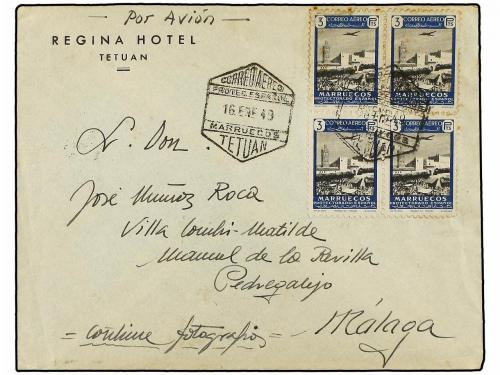 Por Avión
REGINA HOTEL
TETUAN
CORREO AEREO
PROTEC. ESPAÑOL
16 ENE 49
MARRUECOS
TETUAN
3 CORREO AEREO PTS
MARRUECOS
PROTECTORADO ESPAÑOL
3 CORREO AEREO PTS
MARRUECOS
PROTECTORADO ESPAÑOL
3 PTS
MARRUECOS
PROTECTORADO ESPAÑOL
3 PTS
MARRUECOS
PROTECTORADO ESPAÑOL
Don
José Muñoz Roca
Villa Matilde
Manuel de la Revilla
Pedregalejo
Málaga
= contiene fotografías =